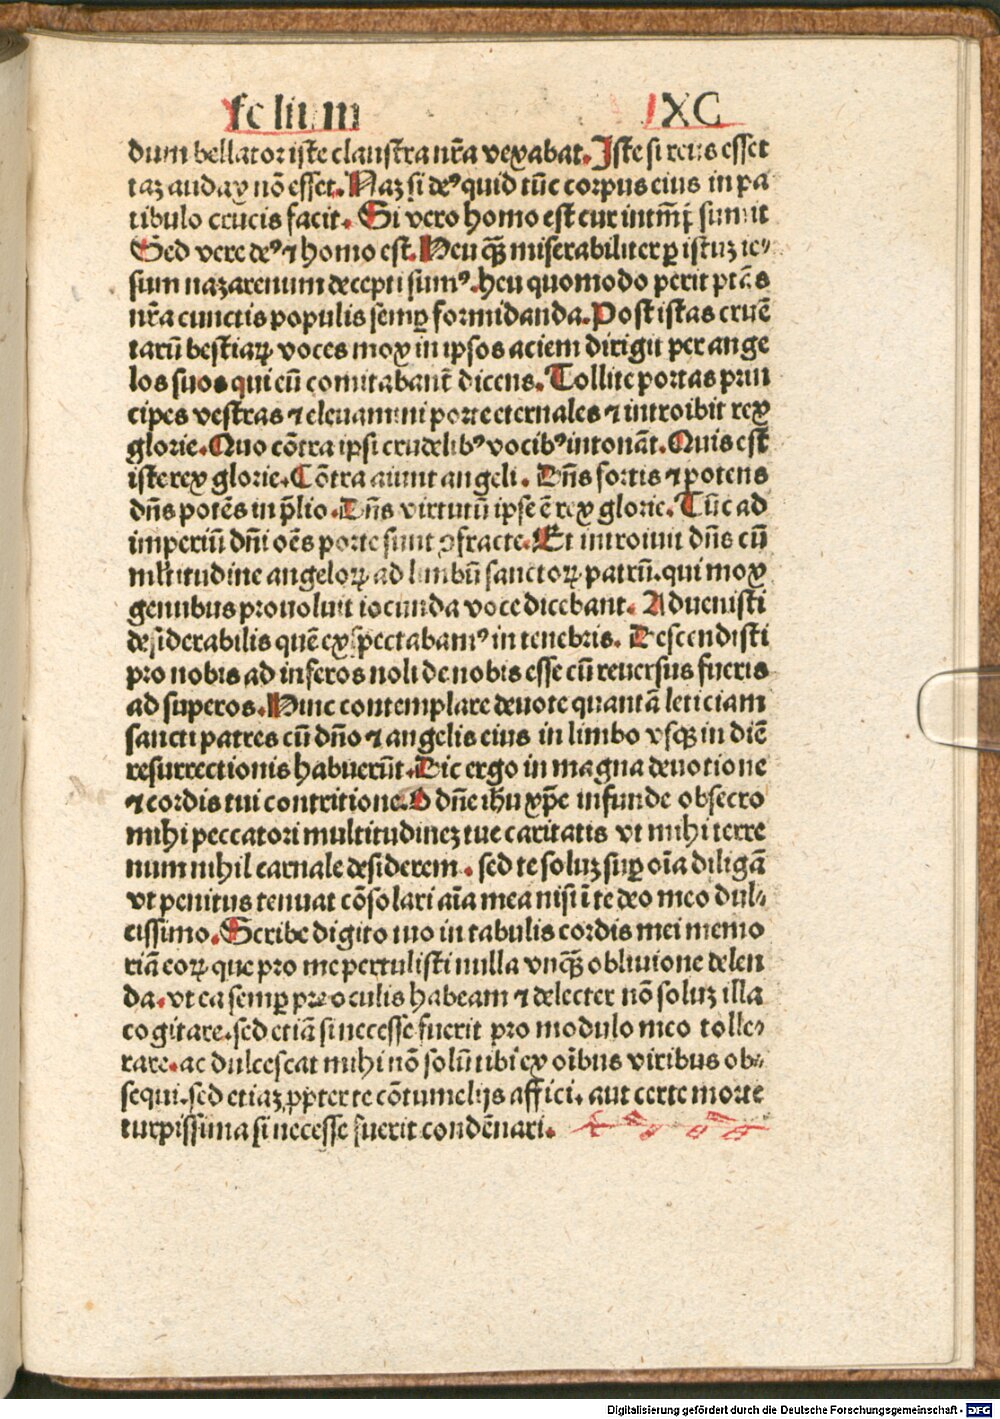 folium XC
dum bellator iste claustra nr̃a vexabat. Iste si reus esset
taꝫ audax nõ esset. Naꝫ si deꝰ quid tũc corpus eius in pa
tibulo crucis facit. Si vero homo est cur
Sed vere deꝰ ⁊ homo est. Heu qꝫ̃ miserabiliter ꝑ istuꝫ ie⸗
sum nazarenum decepti sumꝰ. heu quomodo perit ptãs
nr̃a cunctis populis semꝑ formidanda. Post istas cruẽ
tarũ bestiaꝝ voces mox in ipsos aciem dirigit per ange
los suos qui eũ comitabant̃ dicens. Tollite portas prin
cipes vestras ⁊ eleuamini porte eternales ⁊ introibit rex
glorie. Quo cõtra ipsi crudelibꝰ vocibꝰ intonãt. Quis est
iste rex glorie. Cõtra aiunt angeli. Dñs fortis ⁊ potens
dñs potẽs in p̃lio. Dñs virtutũ ipse ẽ rex glorie. Tũc ad
imperiũ dñi oẽs porte sunt ꝯfracte. Et introiuit dñs cũ
mltitudine angeloꝝ ad limbũ sanctoꝝ patrũ. qui mox
genibus prouoluti iocunda voce dicebant. Aduenisti
desiderabilis quẽ exspectabamꝰ in tenebris. Descendisti
pro nobis ad inferos noli de nobis esse cũ reuersus fueris
ad superos. Hinc contemplare deuote quantã leticiam
sancti patres cũ dño ⁊ angelis eius in limbo vsqꝫ in diẽ
resurrectionis habuerũt. Dic ergo in magna deuotione
⁊ cordis tui contritione. O dñe ihu xp̃e infunde obsecro
mihi peccatori multitudineꝫ tue caritatis vt mihi terre
num nihil carnale desiderem. sed te soluꝫ suꝑ oĩa diligã
vt penitus renuat cõsolari aĩa mea nisi ĩ te deo meo dul⸗
cissimo. Scribe digito tuo in tabulis cordis mei memo
riã eoꝝ que pro me pertulisti nulla vnqꝫ̃ obliuione delen
da. vt ea semꝑ pre oculis habeam ⁊ delecter nõ soluꝫ illa
cogitare. sed etiã si necesse fuerit pro modulo meo tolle⸗
rare. ac dulcescat mihi nõ solũ tibi ex oĩbus viribus ob⸗
sequi. sed etiaꝫ ꝓpter te cõtumelijs affici. aut certe morte
turpissima si necesse fuerit condẽnari.
Digitalisierung gefördert durch die Deutsche Forschungsgemeinschaft - DFG